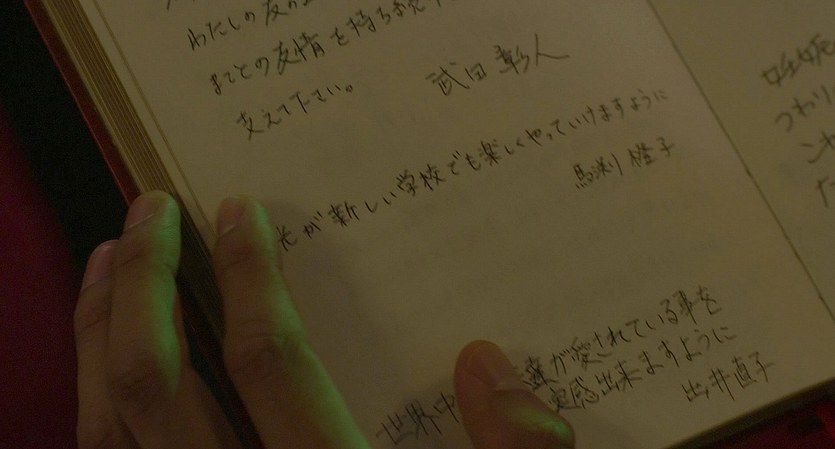 わたしの友の
までとの友情を持ち
支えて下さい。
武田彰人
光が新しい学校でも楽しくやっていけますように
馬渕 橙子
世界中 が愛されている事を
実感出来ますように
出井直子
妊娠
つわり